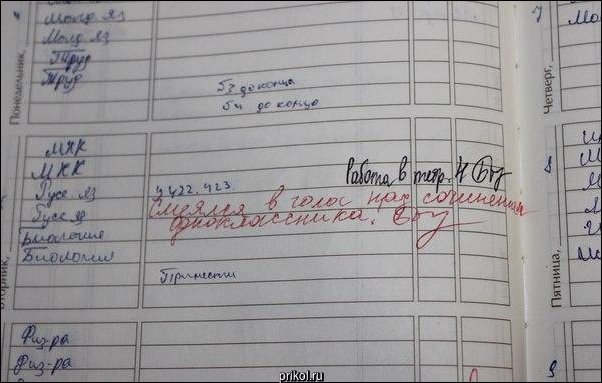 Понедельник,
Молд яз
Молд яз
Труд
Труд
§3 до конца
§4 до конца
Четверг,
7
МХК
МХК
Русс. яз
Русс яз
Биология
Биология
вторник,
422, 423
Работа в тетр. 4
Смеялся в голос над сочинением
одноклассника.
Принести
8
Пятница,
Физ-ра
Физ-ра
9
prikol.ru